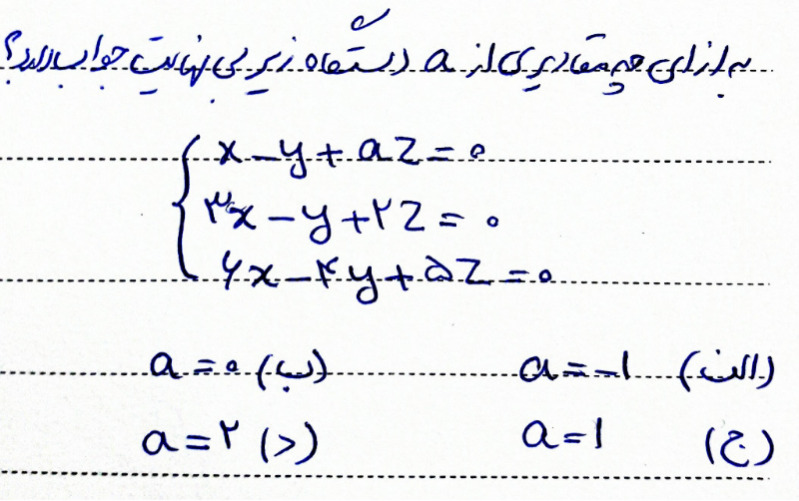 به ازای چه مقادیری از a دستگاه زیر بی نهایت جواب دارد؟
x - y + az = ۰
۳x - y + ۲z = ۰
۶x - ۴y + ۵z = ۰
الف) a = -۱ ب) a = ۰
ج) a = ۱ د) a = ۲